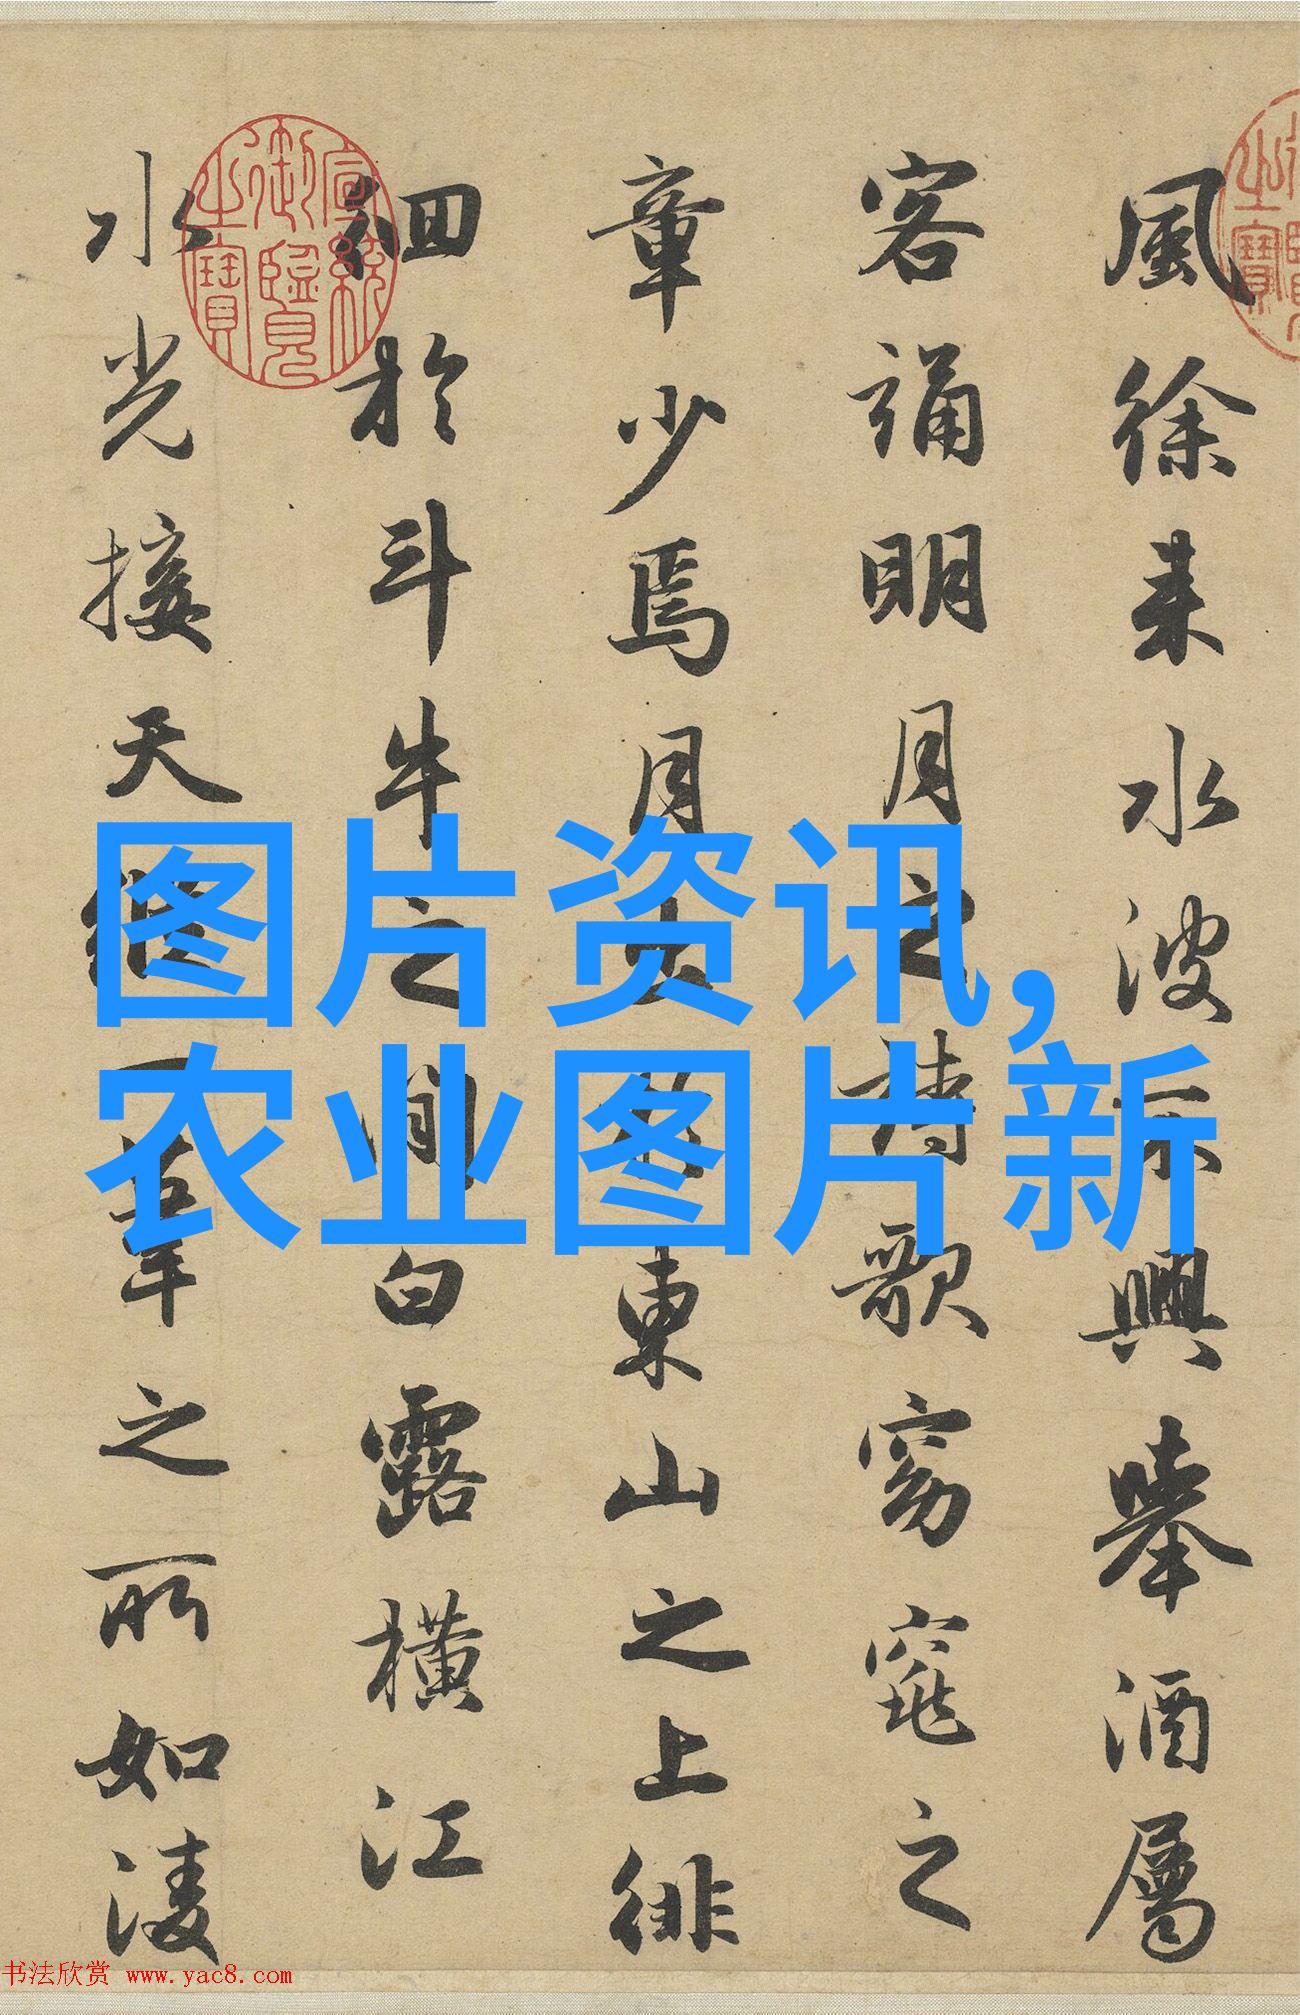 風徐来水波不興舉酒屬
客誦明月之詩歌窈窕之
章少焉月出於東山之上徘
徊於斗牛之間白露橫江
水光接天縱一葦之所如凌
宣統御覽之寶
图片资讯,
农业图片新
书法欣赏 www.yac8.com